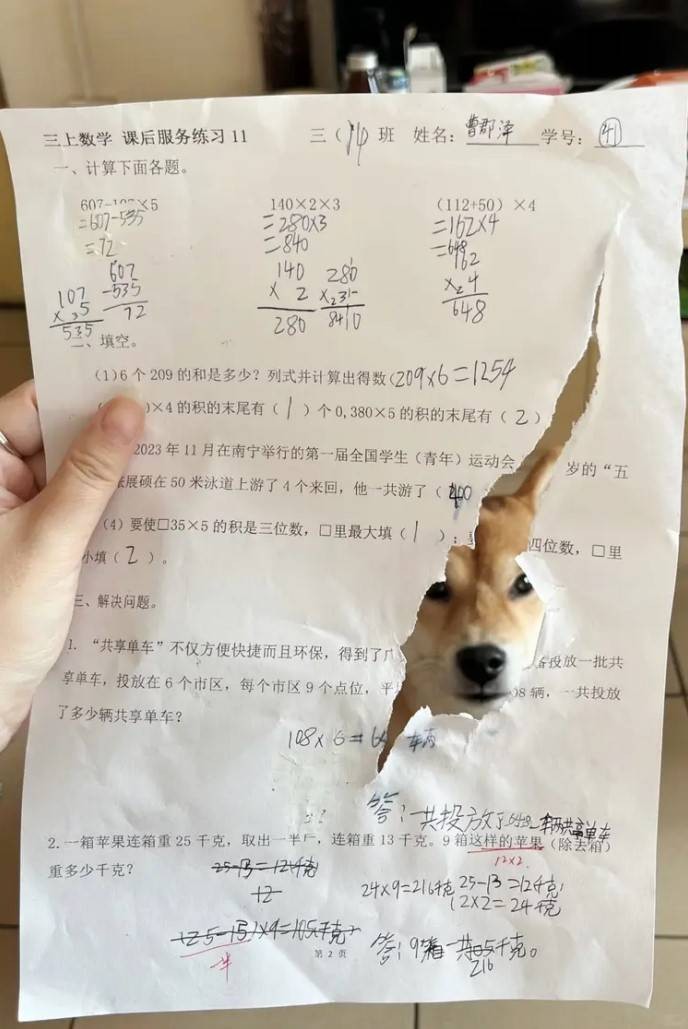 三上数学 课后服务练习 11 三（14）班 姓名：曹郡泽 学号：41
一、计算下面各题。
607-107×5 140×2×3 (112+50) ×4
=607-535 =280×3 =162×4
=72 =840 =648
607 140 280 162
107 -535 × 2 × 3 × 4
× 5 72 280 840 648
535
二、填空。
(1)6 个 209 的和是多少？列式并计算出得数(209×6=1254
0×4 的积的末尾有（ 1 ）个 0,380×5 的积的末尾有（ 2 ）
2023 年 11 月在南宁举行的第一届全国学生（青年）运动会 岁的“五
张展硕在 50 米泳道上游了 4 个来回，他一共游了（ 400
(4) 要使□35×5 的积是三位数，□里最大填（ 1 ）； 四位数，□里
小填（ 2 ）。
三、解决问题。
1. “共享单车”不仅方便快捷而且环保，得到了广 投放一批共
享单车，投放在 6 个市区，每个市区 9 个点位， 08 辆，一共投放
了多少辆共享单车？
108×6=64 辆
答：一共投放了648辆共享单车
2.一箱苹果连箱重 25 千克，取出一半后，连箱重 13 千克。9 箱这样的苹果（除去箱）
12×2
重多少千克？ 25-13=12(千克)
12 24×9=216千克 25-13=12千克
12×2=24千克
25-13)×9=105千克
一半 第 2 页 答：9箱一共105千克。
216